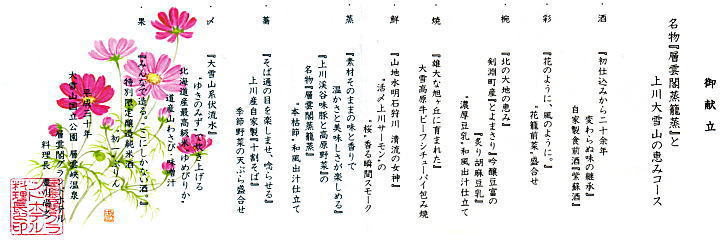 御献立
名物『層雲閣蒸籠蒸』と
上川大雪山の恵みコース
・酒
『初仕込みから二十余年
変わらぬ味の継承』
自家製食前酒『紫蘇酒』
・彩
『花のように、風のように。』
“花籠前菜”盛合せ
・椀
『北の大地の恵み』
剣淵町産『とよまさり』吟醸豆富の
『炙り胡麻豆乳』
“濃厚豆乳・和風出汁仕立て
・焼
『雄大な地ヶ丘に育まれた』
大雪高原牛ビーフシチューパイ包み焼
・鮮
『山地水明石狩川 清流の女神』
“活〆上川サーモンの
“桜”香る瞬間スモーク
・蒸
『素材そのまま本来の味と香りで
温かさと美味しさが楽しめる』
『上川渓谷味豚と高原野菜』の
名物『層雲閣蒸籠蒸』
“本枯節・和風出汁仕立て
・蕎
『そば通の目を楽しませ、唸らせる』
上川産自家製『十割そば』
季節野菜の天ぷら盛合せ
・〆
『大雪山系伏流水』
“ゆきのみずで炊き上げる
北海道産最高級米“ゆめぴりか”
道産山わさび・味噌汁
・果
『みんなで造る。ここにしかない酒。』
特別限定醸造純米酒
初 しぼりん
平成三十年
大雪山国立公園 層雲峡温泉
層雲閣グランドホテル
料理長